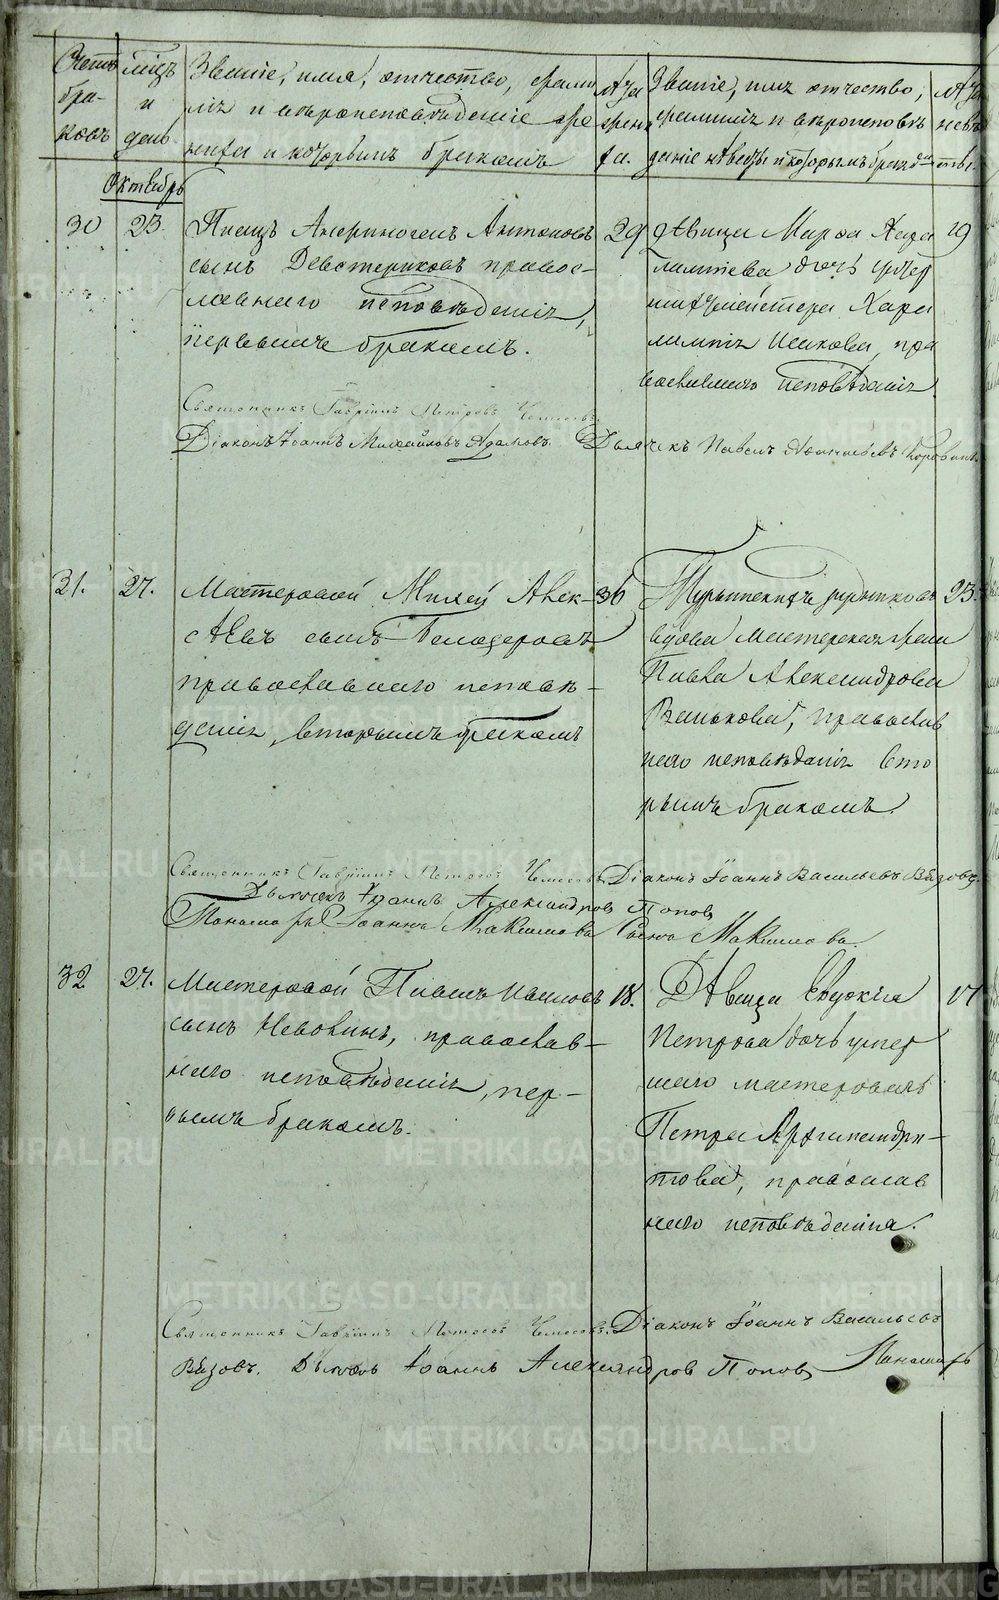 METRIKI.GASO-URAL.RU
Счетъ браковъ
Мѣсяцъ и день
Званіе, имя, отчество, фамилія и вѣроисповѣданіе жениха и которымъ бракомъ
Лѣта жениха.
Званіе, имя отчество, фамилія и вѣроисповѣданіе невѣсты и которымъ бракомъ
Лѣта невѣсты.
Октябрь
30
23.
Писецъ Анфиногенъ Антоновъ
сынъ Девятериковъ правос-
лавнаго исповѣданія,
первымъ бракомъ.
29
Дѣвица Марѳа Хара
лампіева дочь
Хара
лампія Исакова, пра
вославнаго исповѣданія
19
Священникъ Гавріилъ Петровъ
Діаконъ Іоаннъ Михайловъ Адамовъ. Дьячекъ Павелъ
31.
27.
Мастеровой Михей Алек-
сѣевъ сынъ
православнаго исповѣ-
данія, вторымъ бракомъ
36
вдова мастерская жена
Павла Александрова
Ванькова, православ
наго исповѣданія вто
рымъ бракомъ.
23.
Священникъ Гавріилъ Петровъ Діаконъ Іоаннъ Васильевъ Вязовъ.
Дьячекъ Іоаннъ Александровъ Поповъ
Понамарь Іоаннъ Максимова сынъ Максимова.
32
27.
Мастеровой Павелъ Ивановъ
сынъ Неволинъ, православ-
наго исповѣданія, пер-
вымъ бракомъ.
18.
Дѣвица Евдокія
Петрова дочь умер
шаго мастероваго
Петра Архимандри-
това, православ
наго исповѣданія.
17
Священникъ Гавріилъ Петровъ Діаконъ Іоаннъ Васильевъ
Вязовъ. Дьячекъ Іоаннъ Александровъ Поповъ Понамарь